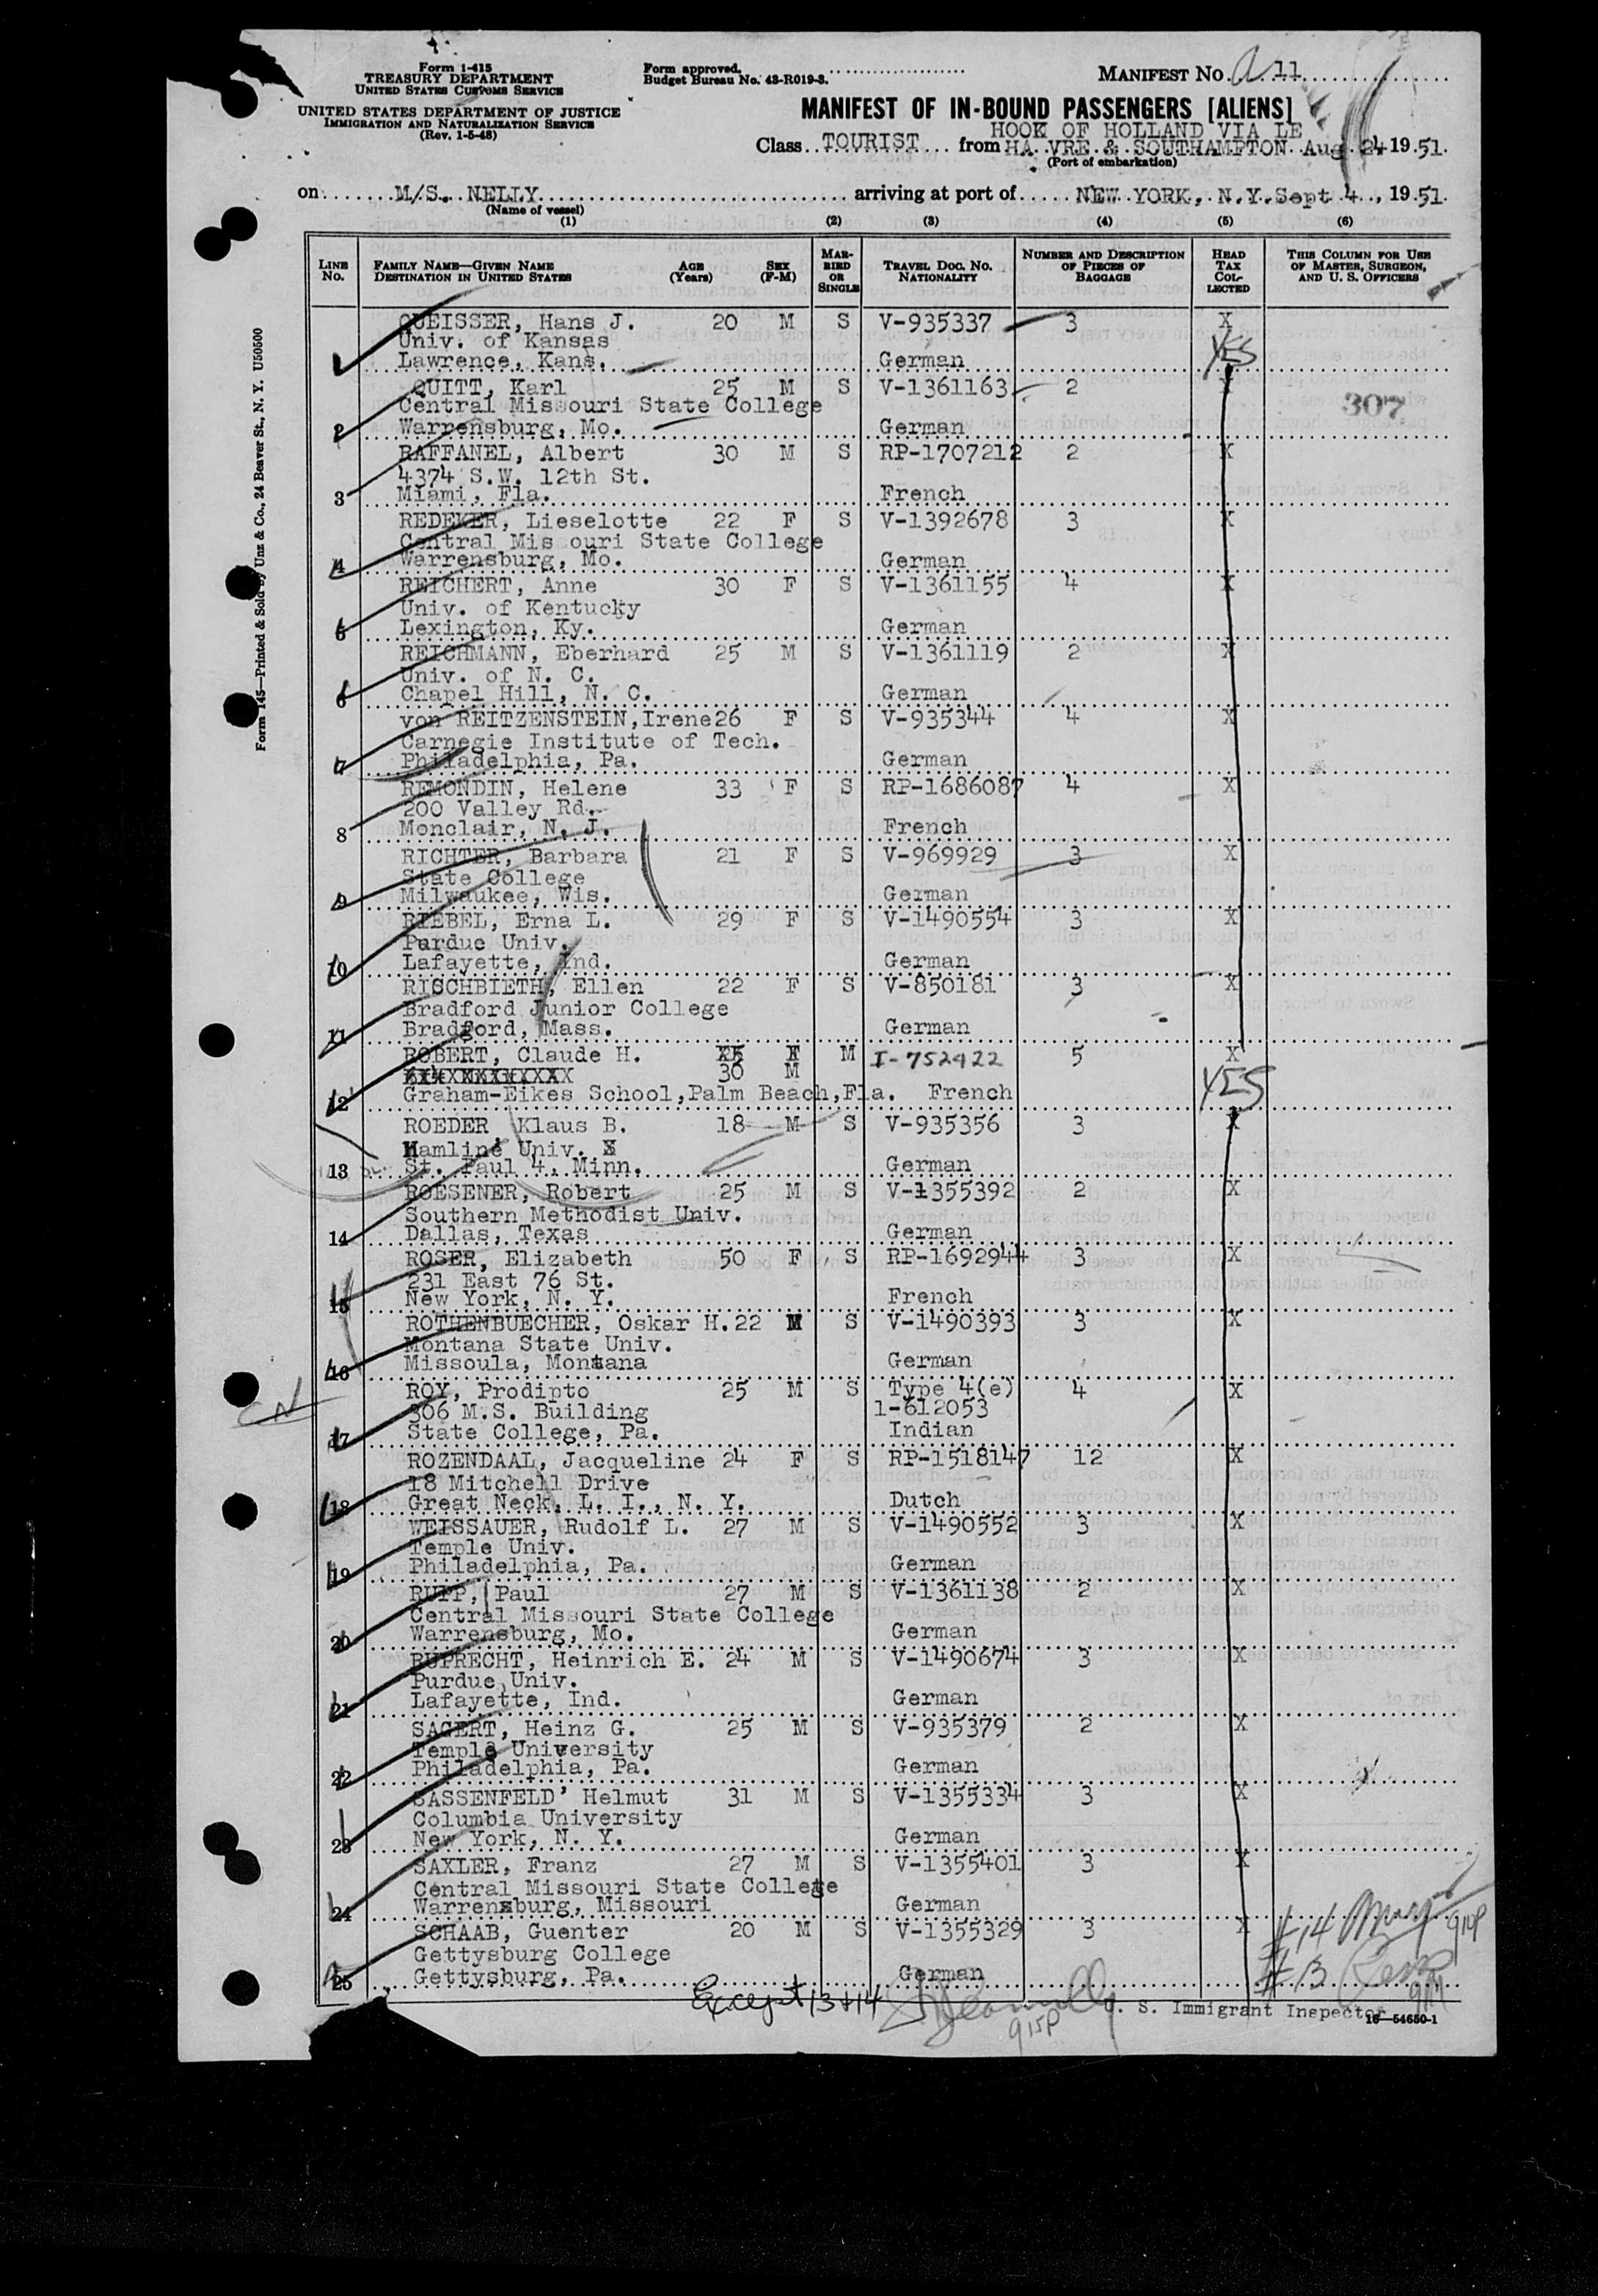 Form I-415
TREASURY DEPARTMENT
UNITED STATES CUSTOMS SERVICE
UNITED STATES DEPARTMENT OF JUSTICE
IMMIGRATION AND NATURALIZATION SERVICE
(Rev. 1-5-48)
Form approved.
Budget Bureau No. 43-R019-3.
MANIFEST NO. a 11
MANIFEST OF IN-BOUND PASSENGERS [ALIENS]
HOOK OF HOLLAND VIA LE
Class TOURIST from HA VRE & SOUTHAMPTON Aug 24 1951.
(Port of embarkation)
on M/S. NELLY arriving at port of NEW YORK, N.Y. Sept 4, 1951.
(Name of vessel)
(1) (2) (3) (4) (5) (6)
LINE NO. FAMILY NAME—GIVEN NAME DESTINATION IN UNITED STATES AGE (Years) SEX (F-M) MARRIED OR SINGLE TRAVEL DOC. NO. NATIONALITY NUMBER AND DESCRIPTION OF PIECES OF BAGGAGE HEAD TAX COLLECTED THIS COLUMN FOR USE OF MASTER, SURGEON, AND U. S. OFFICERS
Form 145—Printed & Sold by Unz & Co., 24 Beaver St., N. Y. U50500
QUEISSER, Hans J. 20 M S V-935337 3 X
Univ. of Kansas YES
1 Lawrence, Kans. German
QUITT, Karl 25 M S V-1361163 2 X
Central Missouri State College 307
2 Warrensburg, Mo. German
RAFFANEL, Albert 30 M S RP-1707212 2 X
4374 S.W. 12th St.
3 Miami, Fla. French
REDEKER, Lieselotte 22 F S V-1392678 3 X
Central Missouri State College
4 Warrensburg, Mo. German
REICHERT, Anne 30 F S V-1361155 4 X
Univ. of Kentucky
5 Lexington, Ky. German
REICHMANN, Eberhard 25 M S V-1361119 2 X
Univ. of N. C.
6 Chapel Hill, N. C. German
von REITZENSTEIN, Irene 26 F S V-935344 4 X
Carnegie Institute of Tech.
7 Philadelphia, Pa. German
REMONDIN, Helene 33 F S RP-1686087 4 X
200 Valley Rd.
8 Monclair, N. J. French
RICHTER, Barbara 21 F S V-969929 3 X
State College
9 Milwaukee, Wis. German
RIEBEL, Erna L. 29 F S V-1490554 3 X
Purdue Univ.
10 Lafayette, Ind. German
RISCHBIETH, Ellen 22 F S V-850181 3 X
Bradford Junior College
11 Bradford, Mass. German
ROBERT, Claude H. M I-752422 5 X
30 M YES
12 Graham-Eikes School, Palm Beach, Fla. French
ROEDER Klaus B. 18 M S V-935356 3 X
Hamline Univ.
13 St. Paul 4, Minn. German
ROESENER, Robert 25 M S V-1355392 2 X
Southern Methodist Univ.
14 Dallas, Texas German
ROSER, Elizabeth 50 F S RP-1692944 3 X
231 East 76 St.
15 New York, N. Y. French
ROTHENBUECHER, Oskar H. 22 M S V-1490393 3 X
Montana State Univ.
16 Missoula, Montana German
ROY, Prodipto 25 M S Type 4(e) 4 X
306 M.S. Building 1-612053
17 State College, Pa. Indian
ROZENDAAL, Jacqueline 24 F S RP-1518147 12 X
18 Mitchell Drive
18 Great Neck, L. I., N. Y. Dutch
WEISSAUER, Rudolf L. 27 M S V-1490552 3 X
Temple Univ.
19 Philadelphia, Pa. German
RUPP, Paul 27 M S V-1361138 2 X
Central Missouri State College
20 Warrensburg, Mo. German
RUPRECHT, Heinrich E. 24 M S V-1490674 3 X
Purdue Univ.
21 Lafayette, Ind. German
SAGERT, Heinz G. 25 M S V-935379 2 X
Temple University
22 Philadelphia, Pa. German
SASSENFELD' Helmut 31 M S V-1355334 3 X
Columbia University
23 New York, N. Y. German
SAXLER, Franz 27 M S V-1355401 3 X
Central Missouri State College
24 Warrensburg, Missouri German
SCHAAB, Guenter 20 M S V-1355329 3 X #14 910P
Gettysburg College
25 Gettysburg, Pa. German #13
Except 13+14 U. S. Immigrant Inspector
915P
16—54650-1